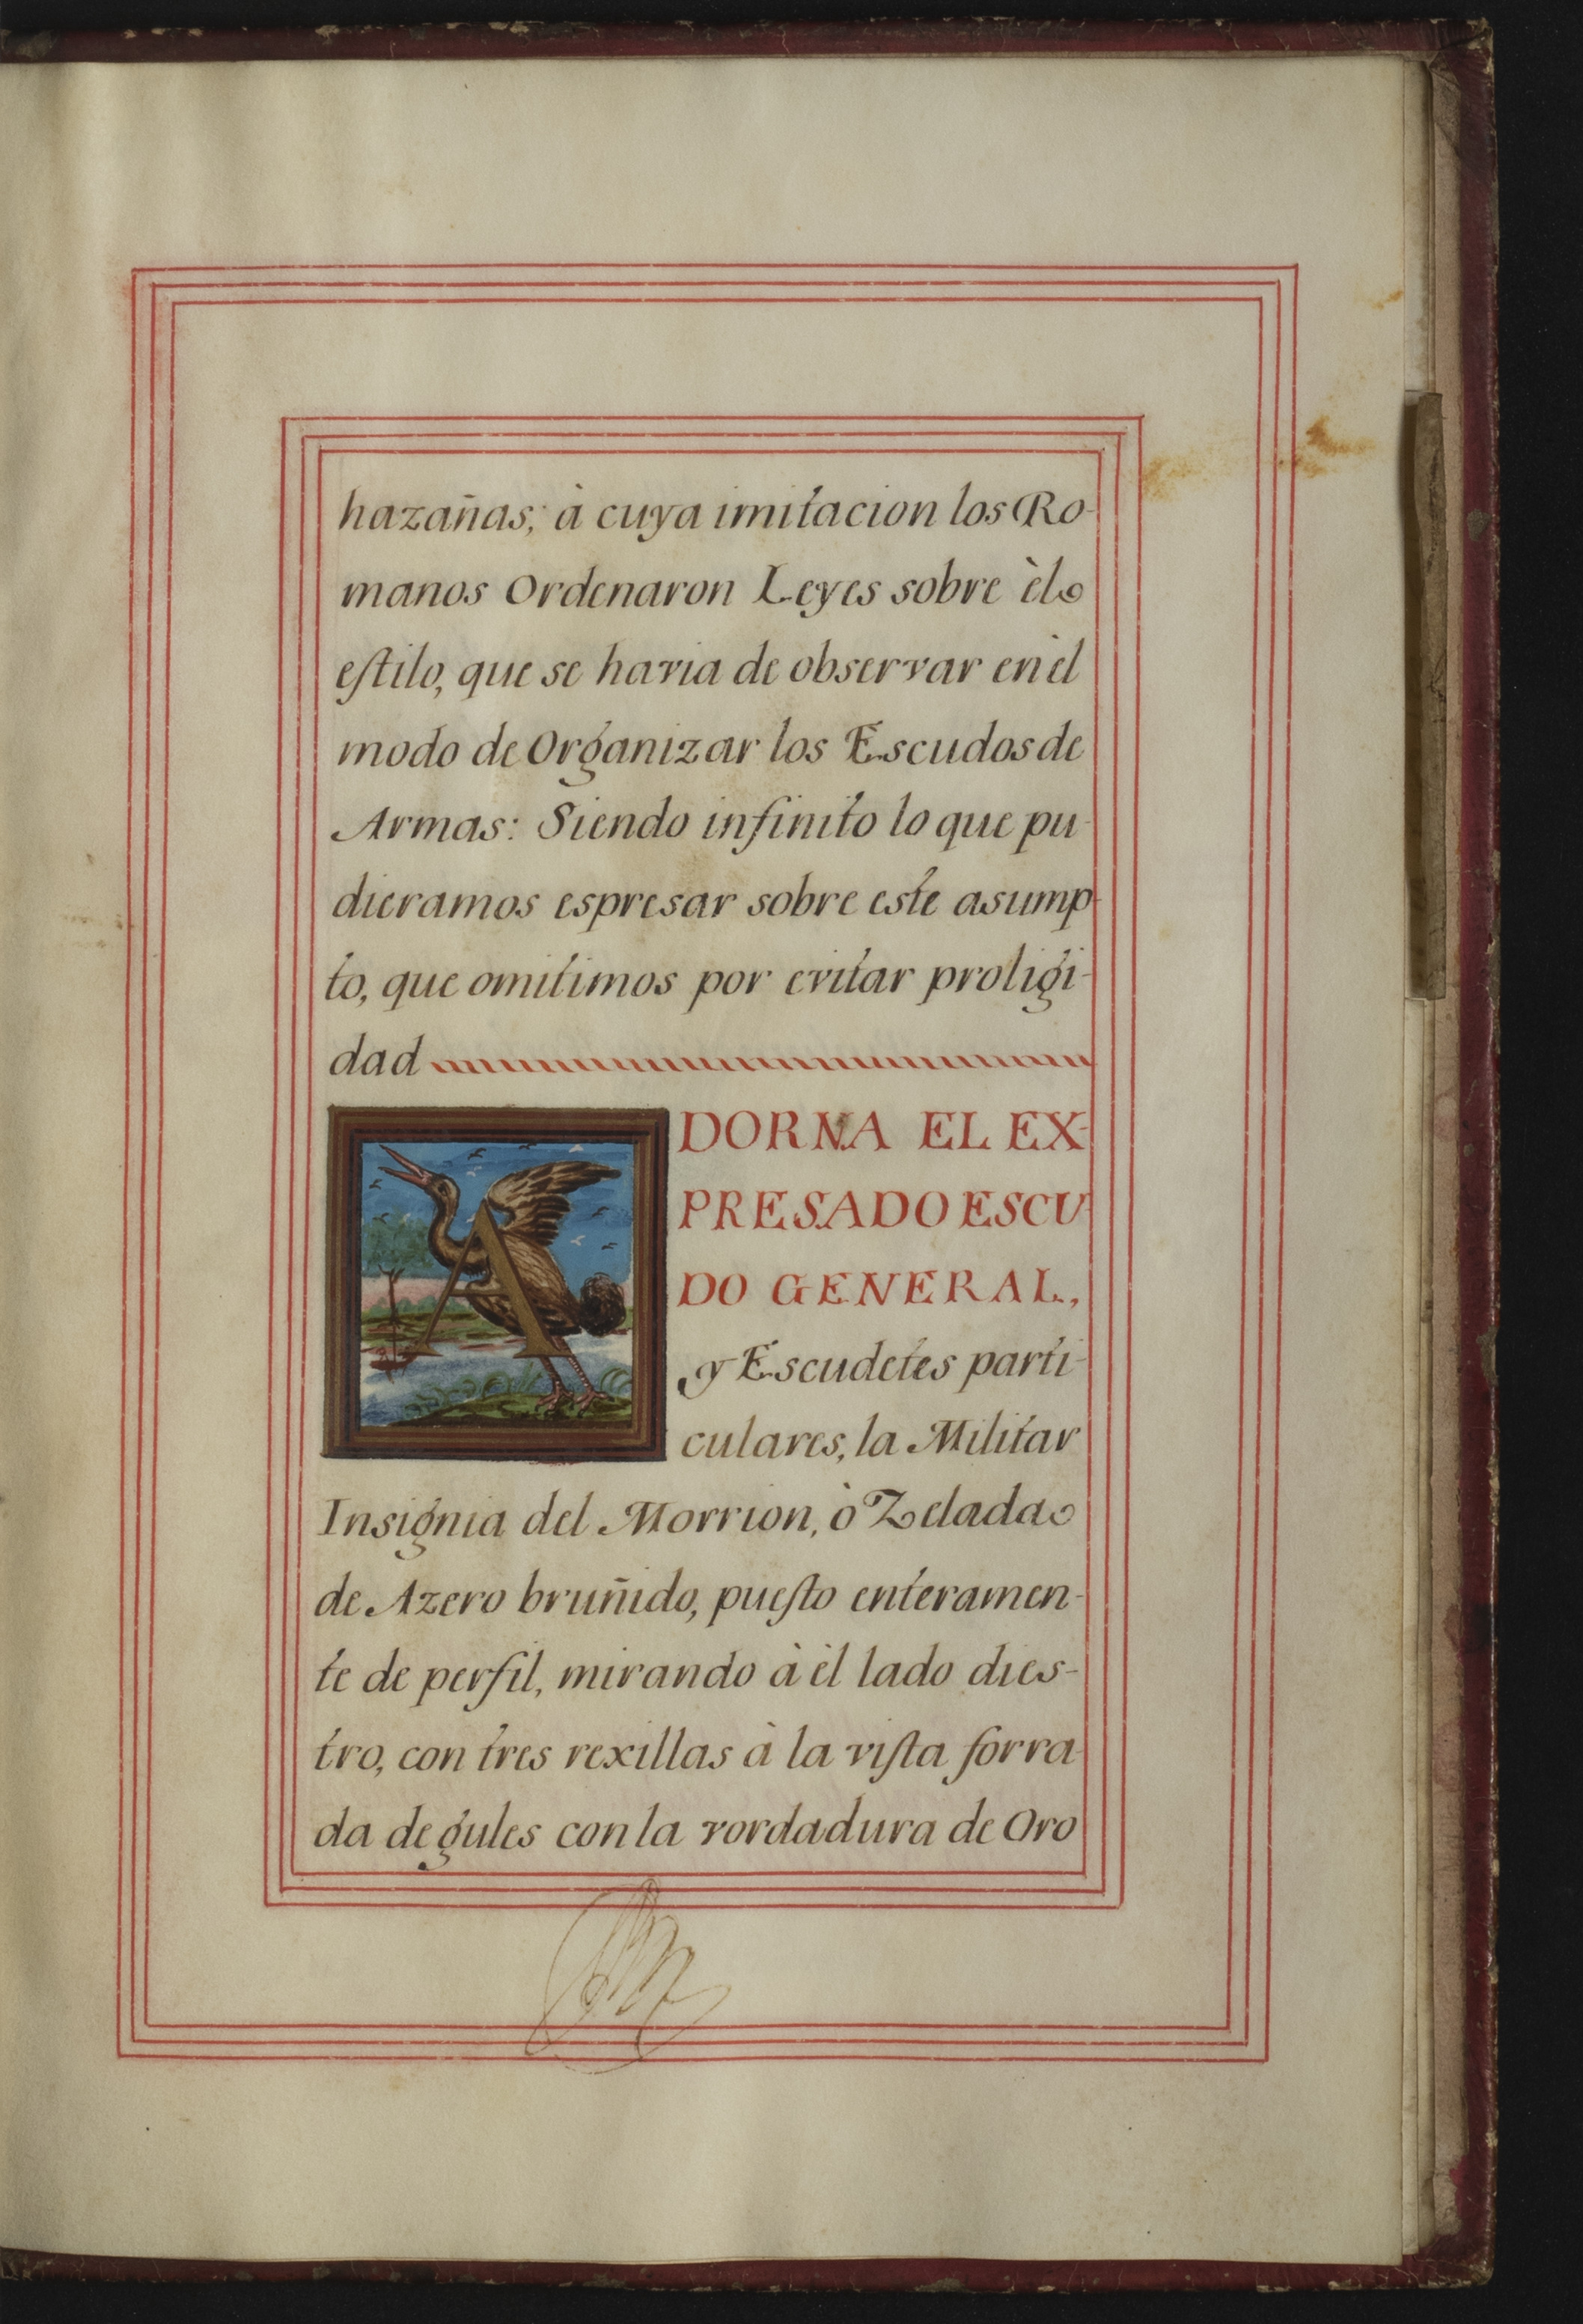 hazañas; à cuya imitacion los Ro-
manos Ordenaron Leyes sobre èl
estilo, que se havia de observar en èl
modo de Organizar los Escudos de
Armas: Siendo infinito lo que pu-
dieramos espresar sobre este asump-
to, que omitimos por evitar proligi-
dad
ADORNA EL EX-
PRESADO ESCU-
DO GENERAL,
y Escudetes parti-
culares, la Militar
Insignia del Morrion, ò Zelada
de Azero bruñido, puesto enteramen-
te de perfil, mirando à èl lado dies-
tro, con tres rexillas à la vista forra-
da de gules con la vordadura de Oro